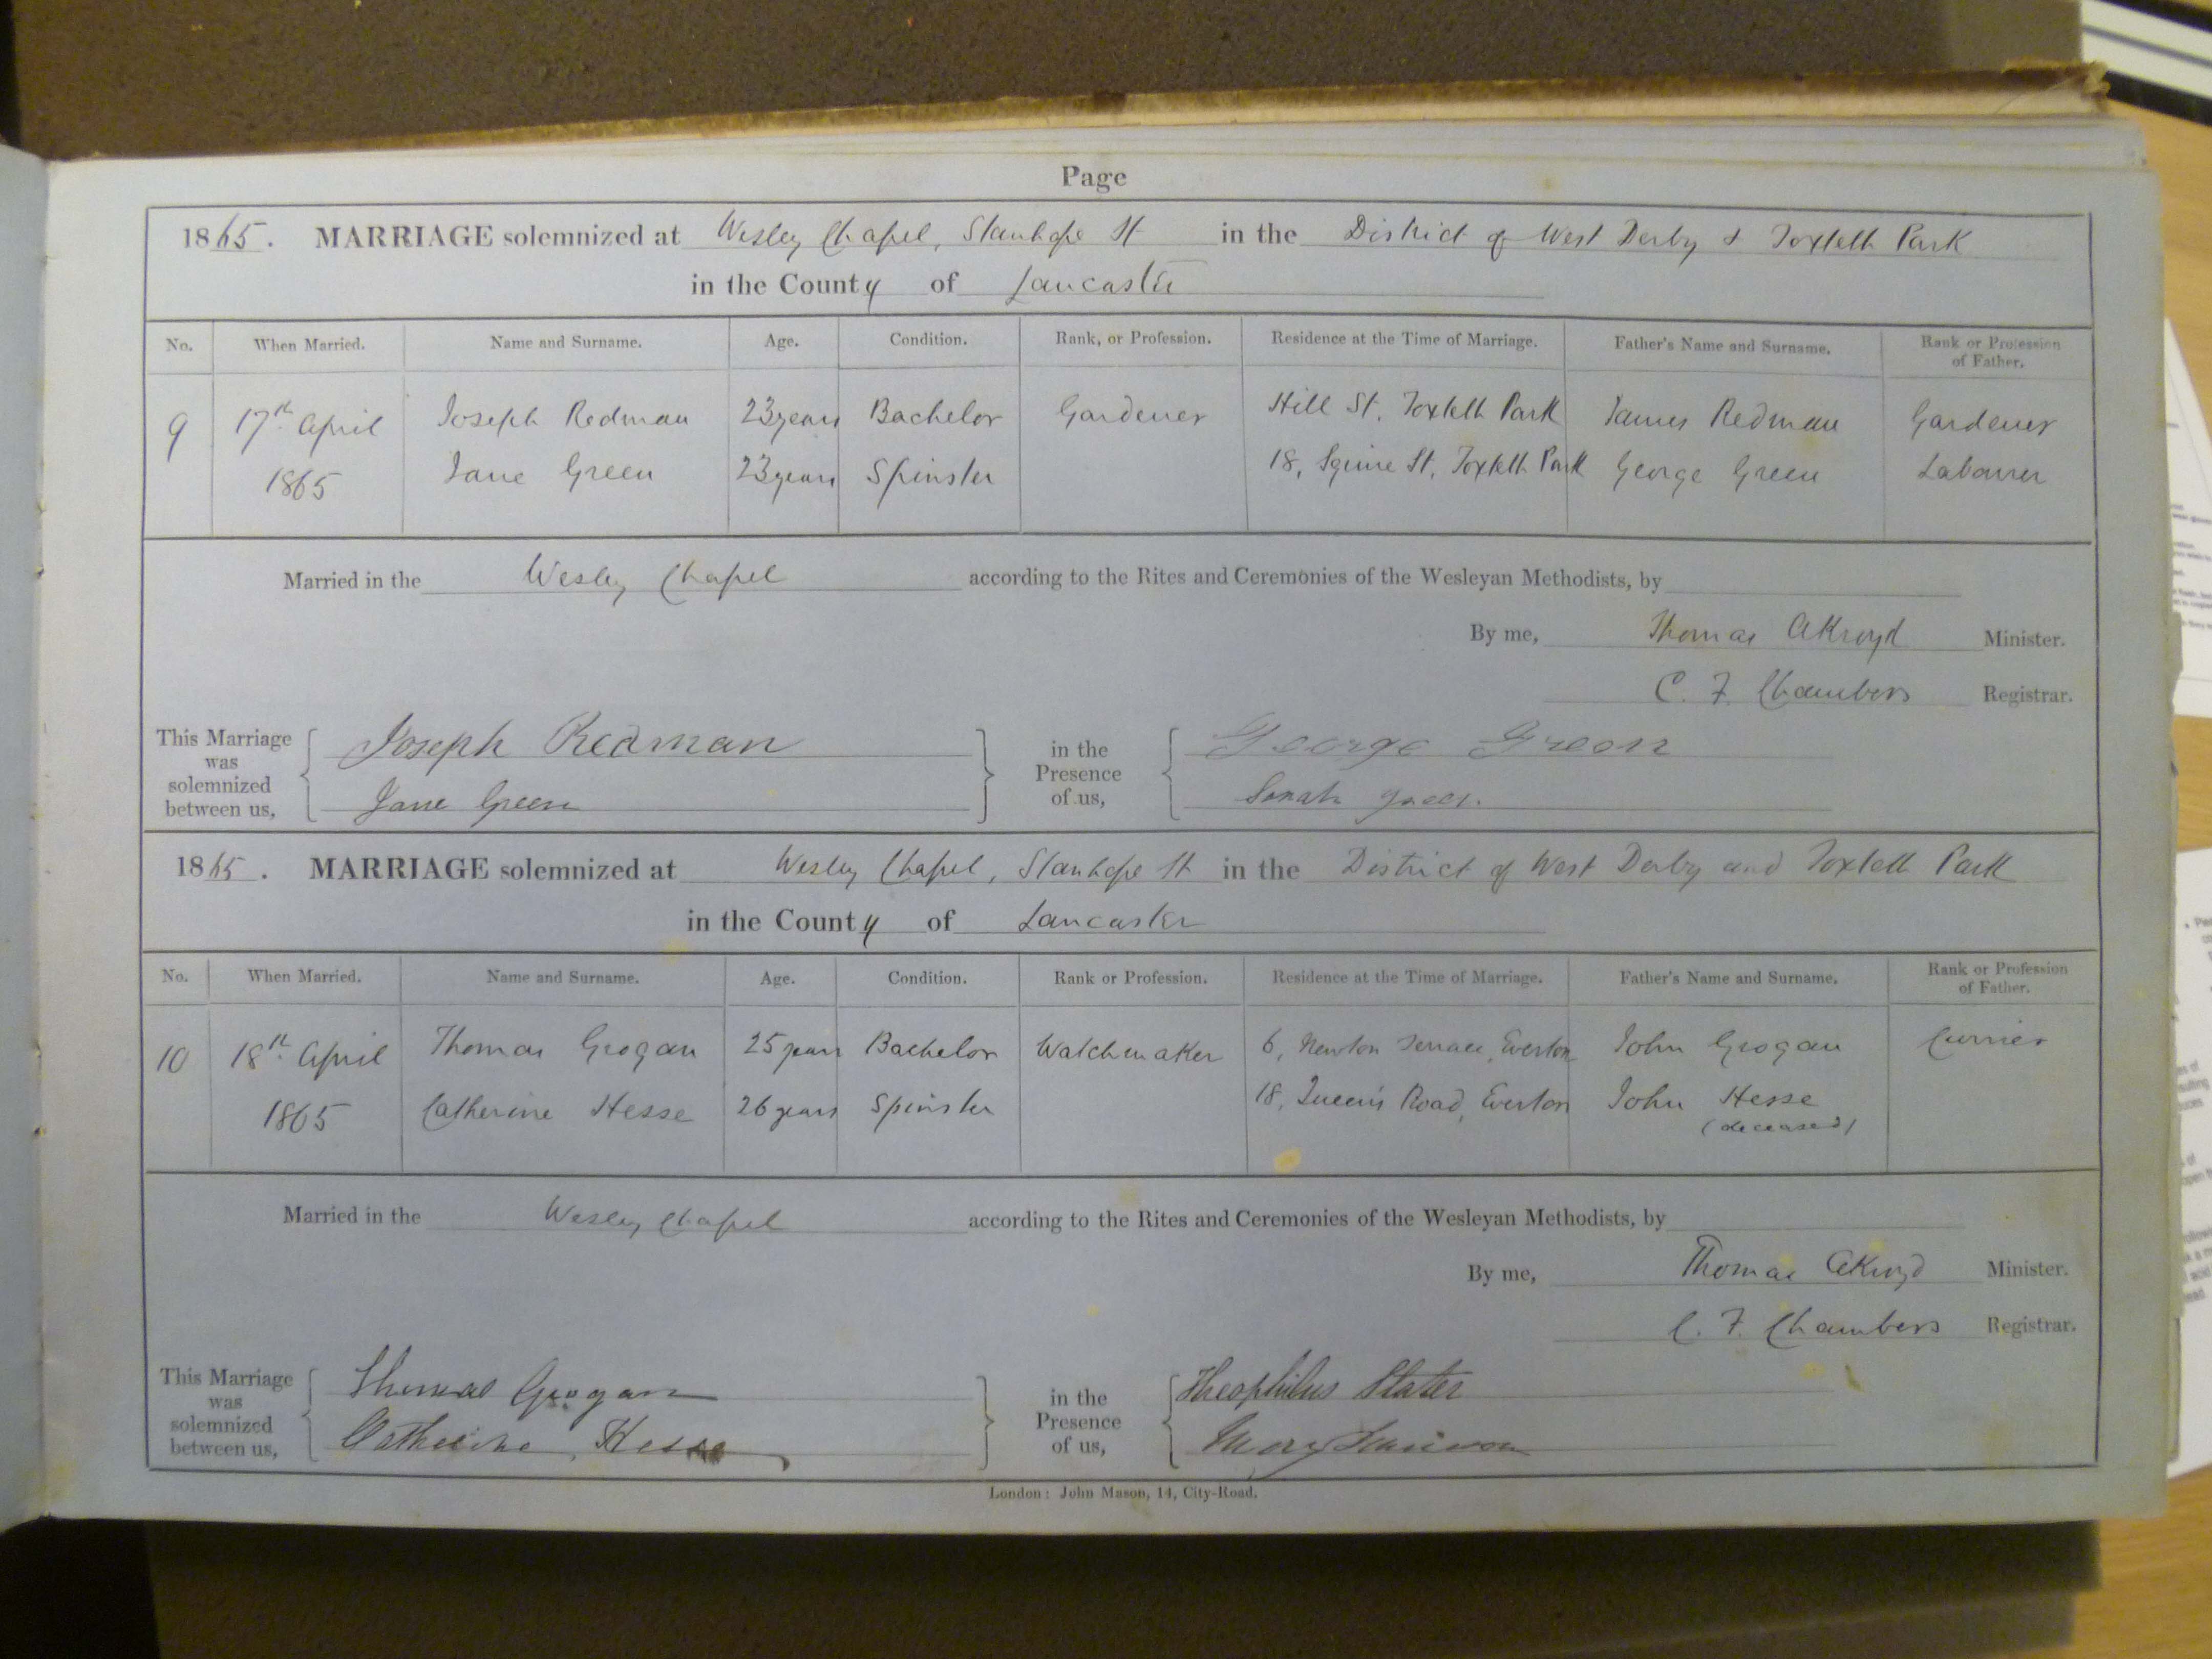 Page
1865. MARRIAGE solemnized at Wesley Chapel, Stanhope St in the District of West Derby & Toxteth Park
in the County of Lancaster
No. When Married. Name and Surname. Age. Condition. Rank, or Profession. Residence at the Time of Marriage. Father's Name and Surname. Rank or Profession of Father.
9 17th April Joseph Redman 23 years Bachelor Gardener Hill St, Toxteth Park James Redman Gardener
1865 Jane Green 23 years Spinster 18, Squire St, Toxteth Park George Green Labourer
Married in the Wesley Chapel according to the Rites and Ceremonies of the Wesleyan Methodists, by
By me, Thomas Akroyd Minister.
C. F. Chambers Registrar.
This Marriage was solemnized between us, Joseph Redman in the Presence of us, George Green
Jane Green Sarah Green
1865. MARRIAGE solemnized at Wesley Chapel, Stanhope St in the District of West Derby and Toxteth Park
in the County of Lancaster
No. When Married. Name and Surname. Age. Condition. Rank or Profession. Residence at the Time of Marriage. Father's Name and Surname. Rank or Profession of Father.
10 18th April Thomas Grogan 25 years Bachelor Watchmaker 6, Newton Terrace, Everton John Grogan Currier
1865 Catherine Hesse 26 years Spinster 18, Queen's Road, Everton John Hesse
(deceased)
Married in the Wesley Chapel according to the Rites and Ceremonies of the Wesleyan Methodists, by
By me, Thomas Akroyd Minister.
C. F. Chambers Registrar.
This Marriage was solemnized between us, Thomas Grogan in the Presence of us, Theophilus Slater
Catherine Hesse Mary
London: John Mason, 14, City-Road.